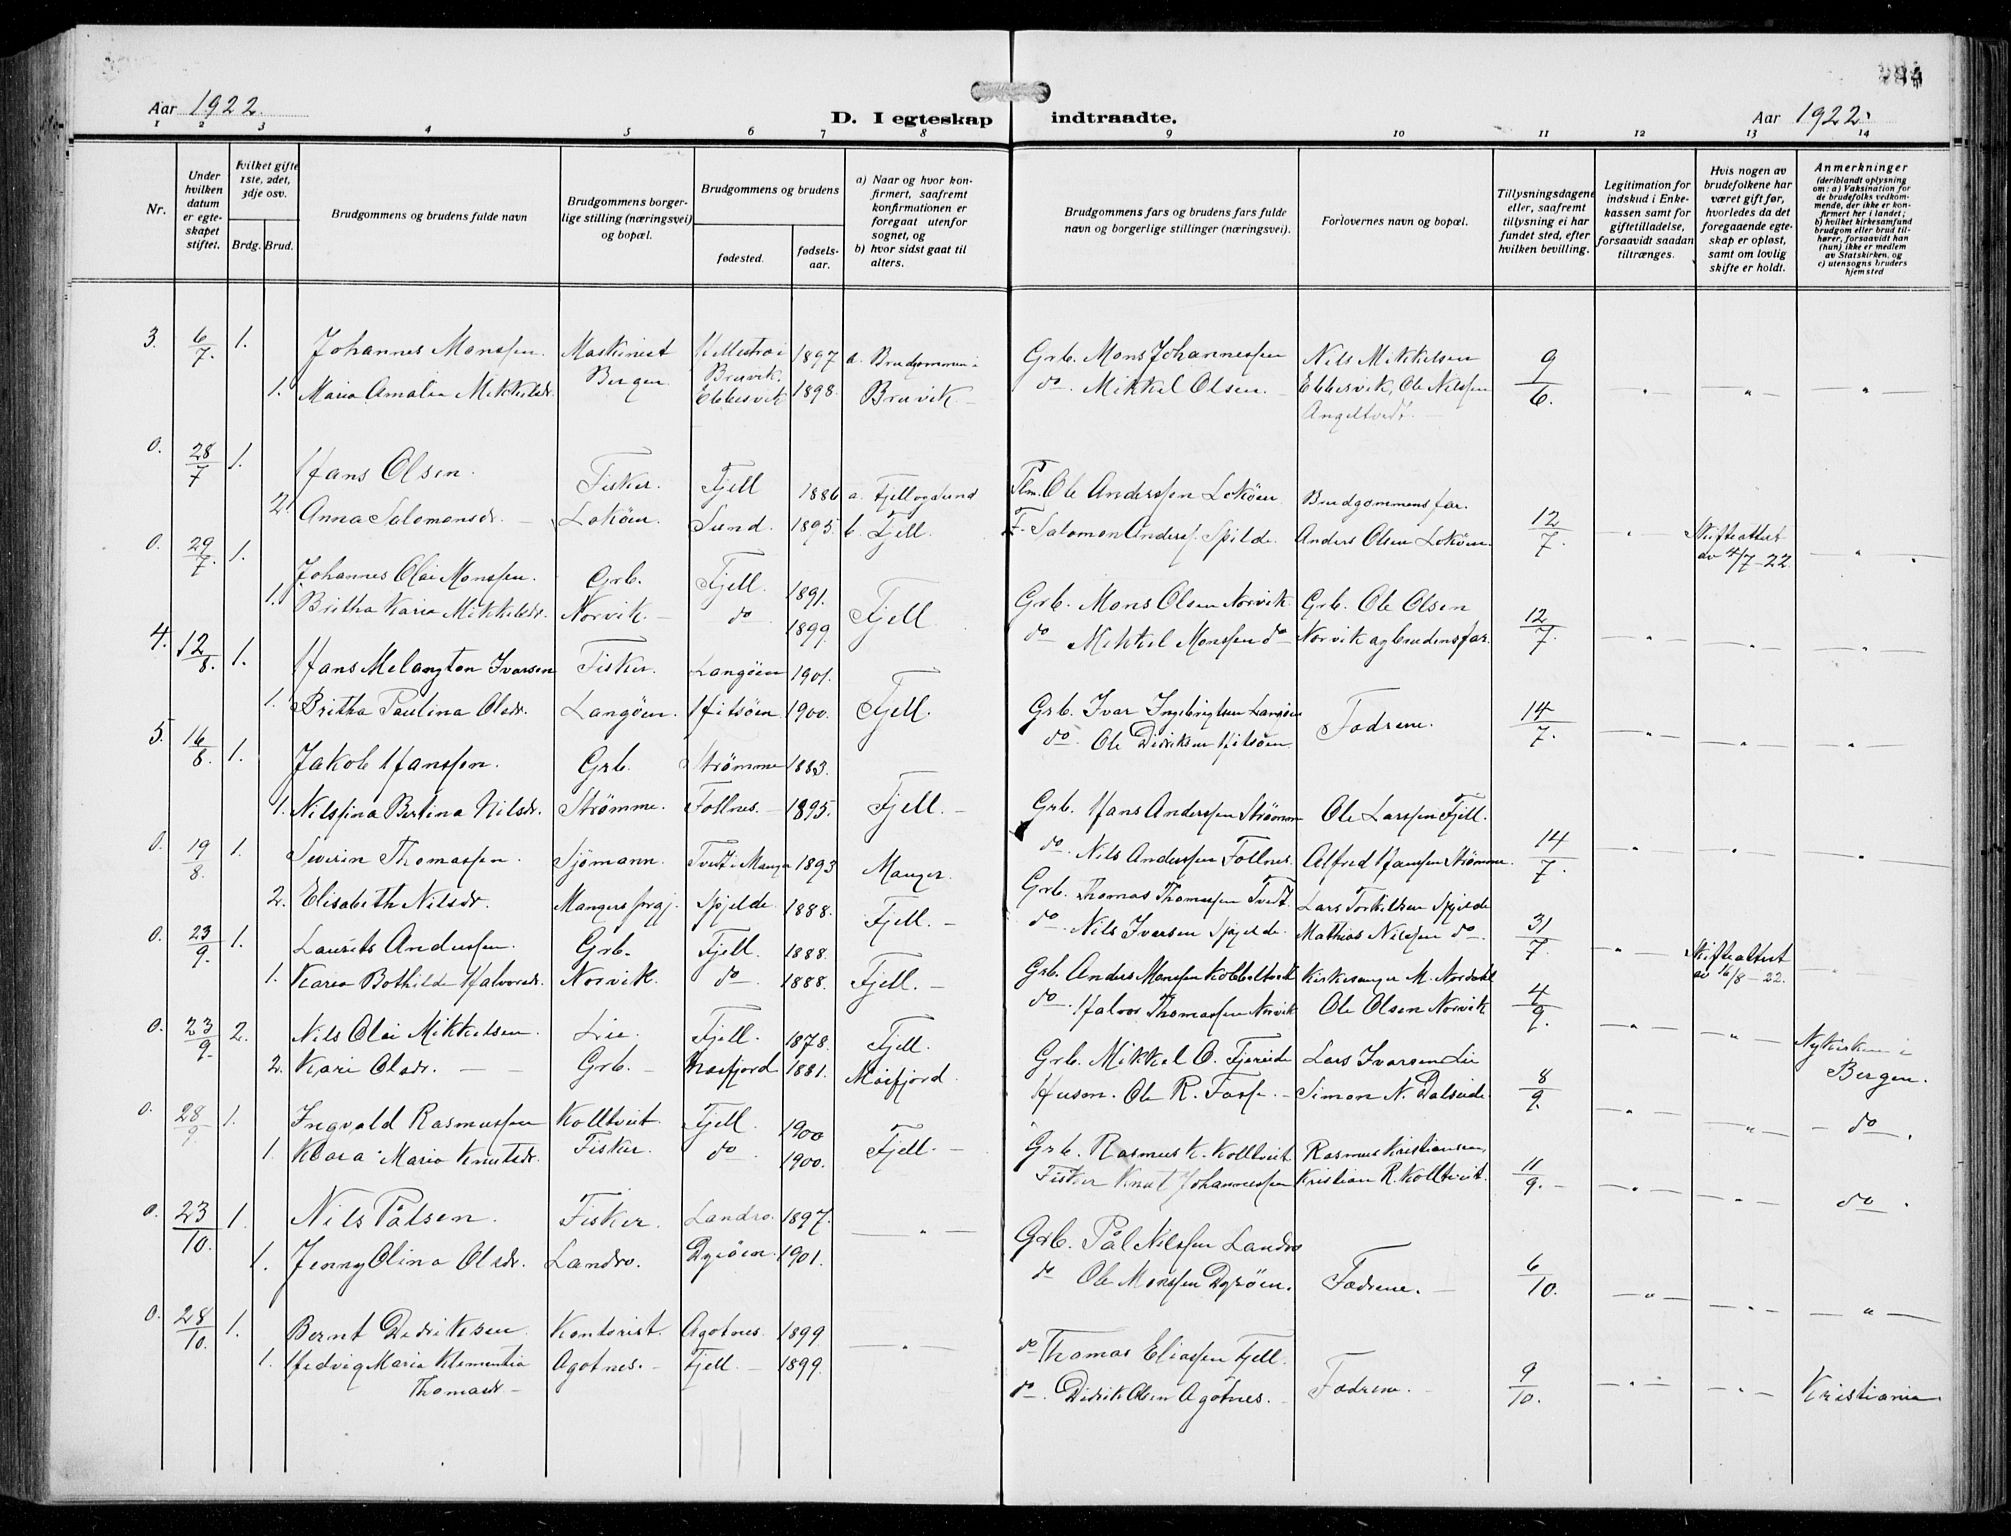 Aar 1922.
D. I egteskap indtraadte.
Aar 1922.
1 2 3 4 5 6 7 8 9 10 11 12 13 14
Nr.
Under hvilken datum er egteskapet stiftet.
Hvilket gifte 1ste, 2det, 3dje osv.
Brdg. Brud.
Brudgommens og brudens fulde navn
Brudgommens borgerlige stilling (næringsvei) og bopæl.
Brudgommens og brudens
fødested. fødselsaar.
a) Naar og hvor konfirmert, saafremt konfirmationen er foregaat utenfor sognet, og
b) hvor sidst gaat til alters.
Brudgommens fars og brudens fars fulde navn og borgerlige stillinger (næringsvei).
Forlovernes navn og bopæl.
Tillysningsdagene eller, saafremt tillysning ei har fundet sted, efter hvilken bevilling.
Legitimation for indskud i Enkekassen samt for giftetilladelse, forsaavidt saadan tiltrænges.
Hvis nogen av brudefolkene har været gift før, hvorledes da det foregaaende egteskap er opløst, samt om lovlig skifte er holdt.
Anmerkninger (deriblandt oplysning om: a) Vaksination for de brudefolks vedkommende, der ikke er konfirmert her i landet; b) hvilket kirkesamfund brudgom eller brud tilhører, forsaavidt han (hun) ikke er medlem av Statskirken, og c) utensogns bruders hjemsted
3. 6/7 1. Johannes Monssen. Maskinist 1897 a. Brudgommen i Grb. Mons Johannessen Nils Mikkelsen 9/6.
1. Maria Amalia Mikkelsdr. Bergen Bruvik. Ebbesvik 1898. Bruvik - do. Mikkel Olsen. - Ebbesvik, Ole Nilssen Angeltvedt. - " - " - "
0. 28/7 1. Hans Olsen. Fisker. Fjell 1886 a. Fjell og Sund Ole Anderssen Lokøen Brudgommens far.
2. Anna Salomonsdr. - Lokøen. Sund. 1895. b. Fjell. F. Salomon Anderss. Spilde. Anders Olsen Lokøen. 12/7. " Skifteattest av 4/7-22 "
0. 29/7 1. Johannes Olai Monssen. Grb. Fjell 1891. Fjell Grb. Mons Olsen Norvik. Grb. Ole Olsen 12/7.
1. Britha Karia Mikkelsdr. Norvik. - do 1899 do Mikkel Monssen do - Norvik og brudens far. " " "
4. 12/8. 1. Hans Melangton Ivarsen Fisker. Langøen 1901. Fjell. Grb. Ivar Ingebrigtsen Langøen Fædrene. 14/7.
1. Britha Paulina Olsdr. Langøen. Hitsøen 1900. do. Ole Didriksen Hitsøen. " " "
5. 16/8. 1. Jakob Hanssen. Grb. Strømme 1883. Fjell. - Grb. Hans Anderssen Strømme Ole Larssen Fjell.
1. Nilssina Bertina Nilsdr. Strømme. Follnes. - 1895. do. Nils Anderssen Follnes. Alfred Hanssen Strømme. 14/7. " " "
0. 19/8. 1. Severin Thomassen. Sjømann. Tvedt i Manger 1893 Manger. Grb. Thomas Thomassen Tvedt. Lars Torkildsen Spjelde
2. Elisabeth Nilsdr. Mangers prgj. Spjelde 1888. Fjell. - do Nils Iversen Spjelde. Mathias Nilssen do - 31/7. " Skifteattest av 16/8-22. "
0. 23/9. 1. Laurits Anderssen. Grb. Fjell. 1888. Fjell. - Grb. Anders Monssen Kobbeltvedt Kirkesanger M. Nordahl
1. Karia Bothilde Halvorsdr. Norvik. do 1888. do. Halvor Thomassen Norvik Ole Olsen Norvik 4/9. " "
0. 23/9. 2. Nils Olai Mikkelsen. Lie Fjell. 1878. Fjell. Grb. Mikkel O. Fjæreide Lars Ivarsen Lie 8/9. Nykirken i Bergen.
2. Kari Olsdr. - - Grb. - Masfjord 1881. Masfjord. Husm. Ole R. Fosse. - Simon N. Dalseide. " "
0. 28/9. 1. Ingvald Rasmussen Kolltveit Fjell. 1900 Fjell. - Grb. Rasmus K. Kolltveit Rasmus Kristiansen, 11/9. - - do.
1. Klara Maria Knutsdr. Fisker. do 1900. Fisker Knut Johannessen Kristian R. Kolltveit. " "
0. 23/10. 1. Nils Pålsen. Fisker. Landro. 1897. " Grb. Pål Nilssen Landro 6/10. do.
1. Jenny Olina Olsdr. Landro. Dyrøen. 1901. do Ole Monssen Dyrøen. Fædrene. - " " "
0. 28/10. 1. Bernt Didriksen. Kontorist. Agotnes. 1899 " do Thomas Eliassen Fjell.
1. Hedvig Maria Klementia Thomasdr - Agotnes. - Fjell. - 1899. do. Didrik Olsen Agotnes. - Fædrene. - 9/10. " " Kristiania